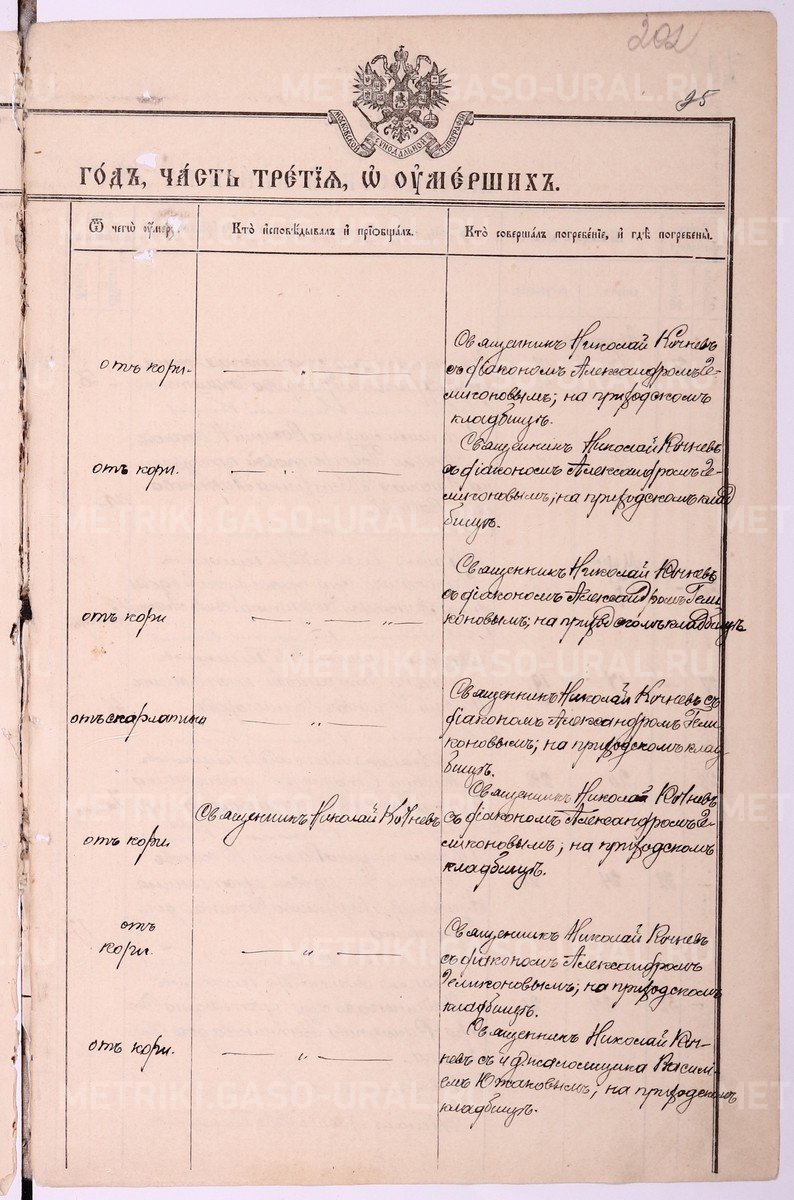 202
95
МОСКОВСКОЙ СѴНОДАЛЬНОЙ ТИПОГРАФІИ
ГО́ДЪ, ЧА́СТЬ ТРЕ́ТІѦ, Ѡ҆ ОУ҆МЕ́РШИХЪ.
Ѿ чегѡ̀ оу҆́мер
Кто̀ и҆сповѣ́дывалъ и҆ прїѡбща́лъ.
Кто̀ соверша́лъ погребе́нїе, и҆ гдѣ̀ погребены̀.
отъ кори.
— „ —
Священникъ Николай Кочневъ
съ діакономъ Александромъ Ге-
ликоновымъ; на приходскомъ
кладбищѣ.
отъ кори.
— „ —
Священникъ Николай Кочневъ
съ діакономъ Александромъ Ге-
ликоновымъ; на приходскомъ клад
бищѣ.
отъ кори
— „ — „ —
Священникъ Николай Кочневъ
съ діакономъ Александромъ Гели
коновымъ; на приходскомъ кладбищѣ
отъ скарлатино
— „ —
Священникъ Николай Кочневъ съ
діакономъ Александромъ Гели
коновымъ; на приходскомъ клад-
бищѣ.
отъ кори
Священникъ Николай Кочневъ
Священникъ Николай Кочневъ
съ діакономъ Александромъ Ге-
ликоновымъ; на приходскомъ
кладбищѣ.
отъ
кори.
— „ —
Священникъ Николай Кочневъ
съ діакономъ Александромъ
Геликоновымъ; на приходскомъ
кладбищѣ.
отъ кори.
— „ —
Священникъ Николай Коч-
невъ съ и д псаломщика Василі-
емъ Южаковымъ; на приходскомъ
кладбищѣ.
METRIKI.GASO-URAL.RU